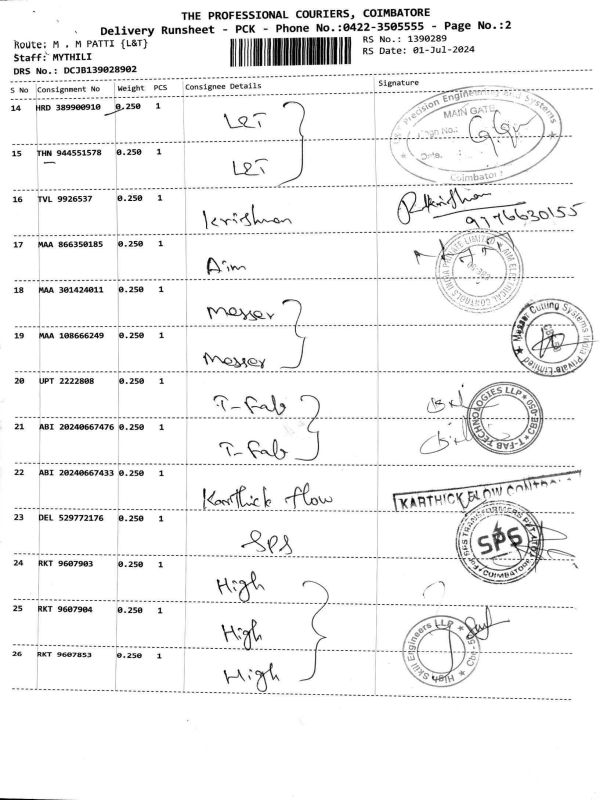 THE PROFESSIONAL COURIERS, COIMBATORE
Delivery Runsheet - PCK - Phone No.:0422-3505555 - Page No.:2
Route: M . M PATTI {L&T}
RS No.: 1390289
Staff: MYTHILI
RS Date: 01-Jul-2024
DRS No.: DCJB139028902
S No Consignment No Weight PCS Consignee Details Signature
14 HRD 389900910 0.250 1 L&T
Precision Engineering and Systems
MAIN GATE
Sign No.:
Date.
Coimbatore
15 THN 944551578 0.250 1 L&T
16 TVL 9926537 0.250 1 Krishnan
17 MAA 866350185 0.250 1 Aim
AIM ELECTRICAL CONTROLS INDIA PRIVATE LIMITED
18 MAA 301424011 0.250 1 Messer
Messer Cutting Systems India Private Limited
19 MAA 108666249 0.250 1 Messer
20 UPT 2222808 0.250 1 T-Fab
T-FAB TECHNOLOGIES LLP
21 ABI 20240667476 0.250 1 T-Fab
22 ABI 20240667433 0.250 1 Karthick flow
KARTHICK FLOW
23 DEL 529772176 0.250 1 SPS
SPS
COIMBATORE
24 RKT 9607903 0.250 1 High
25 RKT 9607904 0.250 1 High
High Skill Engineers LLP
26 RKT 9607853 0.250 1 High